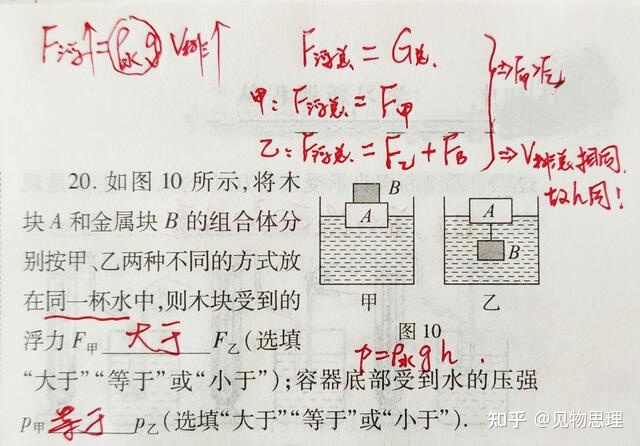 F浮↑=ρ水g V排↑
F浮总=G总.
甲:F浮总=F甲
乙:F浮总.=F乙+FB
⇒F甲>F乙
⇒V排总相同.
故h同!
20. 如图10所示,将木
块A和金属块B的组合体分
别按甲、乙两种不同的方式放
在同一杯水中,则木块受到的
浮力F甲 大于 F乙(选填
“大于”“等于”或“小于”);容器底部受到水的压强
p甲 等于 p乙(选填“大于”“等于”或“小于”).
B
A
甲
A
B
乙
图10
p=ρ水gh.
知乎 @见物思理